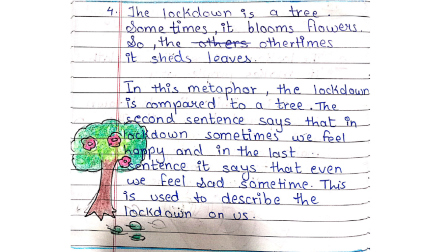 4. The lockdown is a tree.
Some times, it blooms flowers.
So, the others othertimes
it sheds leaves.
In this metaphor, the lockdown
is compared to a tree. The
second sentence says that in
lockdown sometimes we feel
happy and in the last
sentence it says that even
we feel sad sometime. This
is used to describe the
lockdown on us.